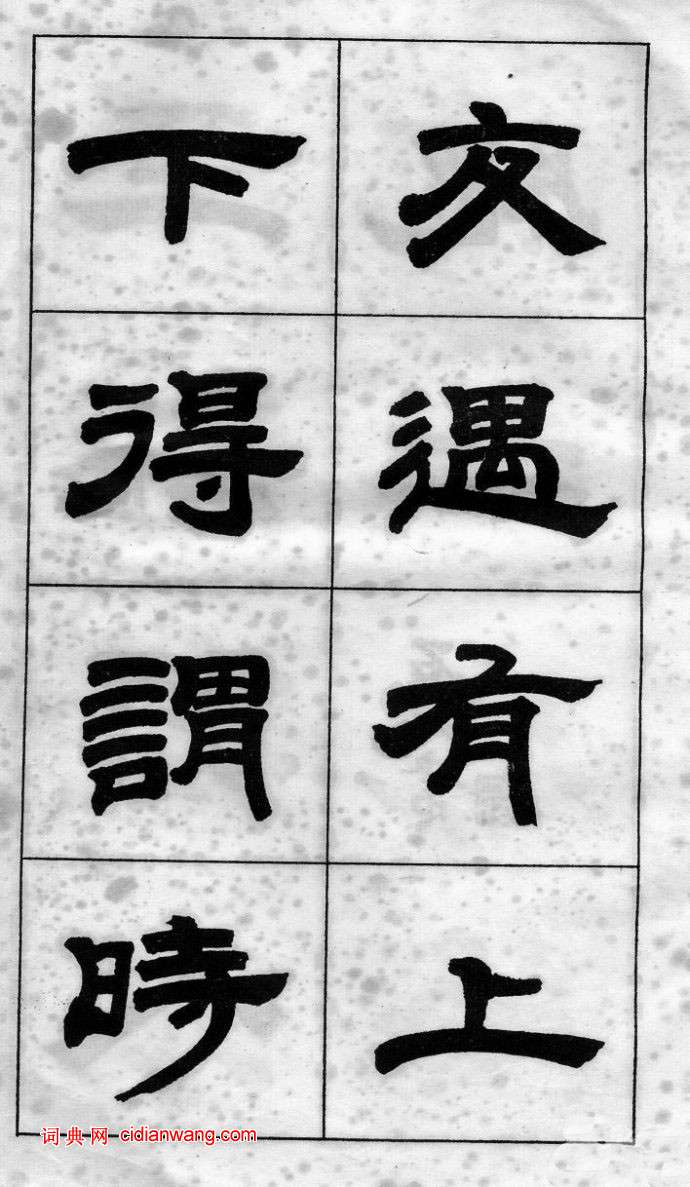 交遇有上
下得謂時
词典网 cidianwang.com